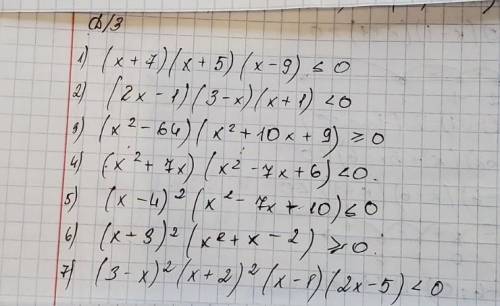 Д/З
1) (x + 7)(x + 5)(x - 9) ≤ 0
2) (2x - 1)(3 - x)(x + 1) < 0
3) (x² - 64)(x² + 10x + 9) ≥ 0
4) (x² + 7x)(x² - 7x + 6) < 0.
5) (x - 4)²(x² - 7x + 10) ≤ 0
6) (x + 3)²(x² + x - 2) ≥ 0.
7) (3 - x)²(x + 2)²(x - 1)(2x - 5) < 0